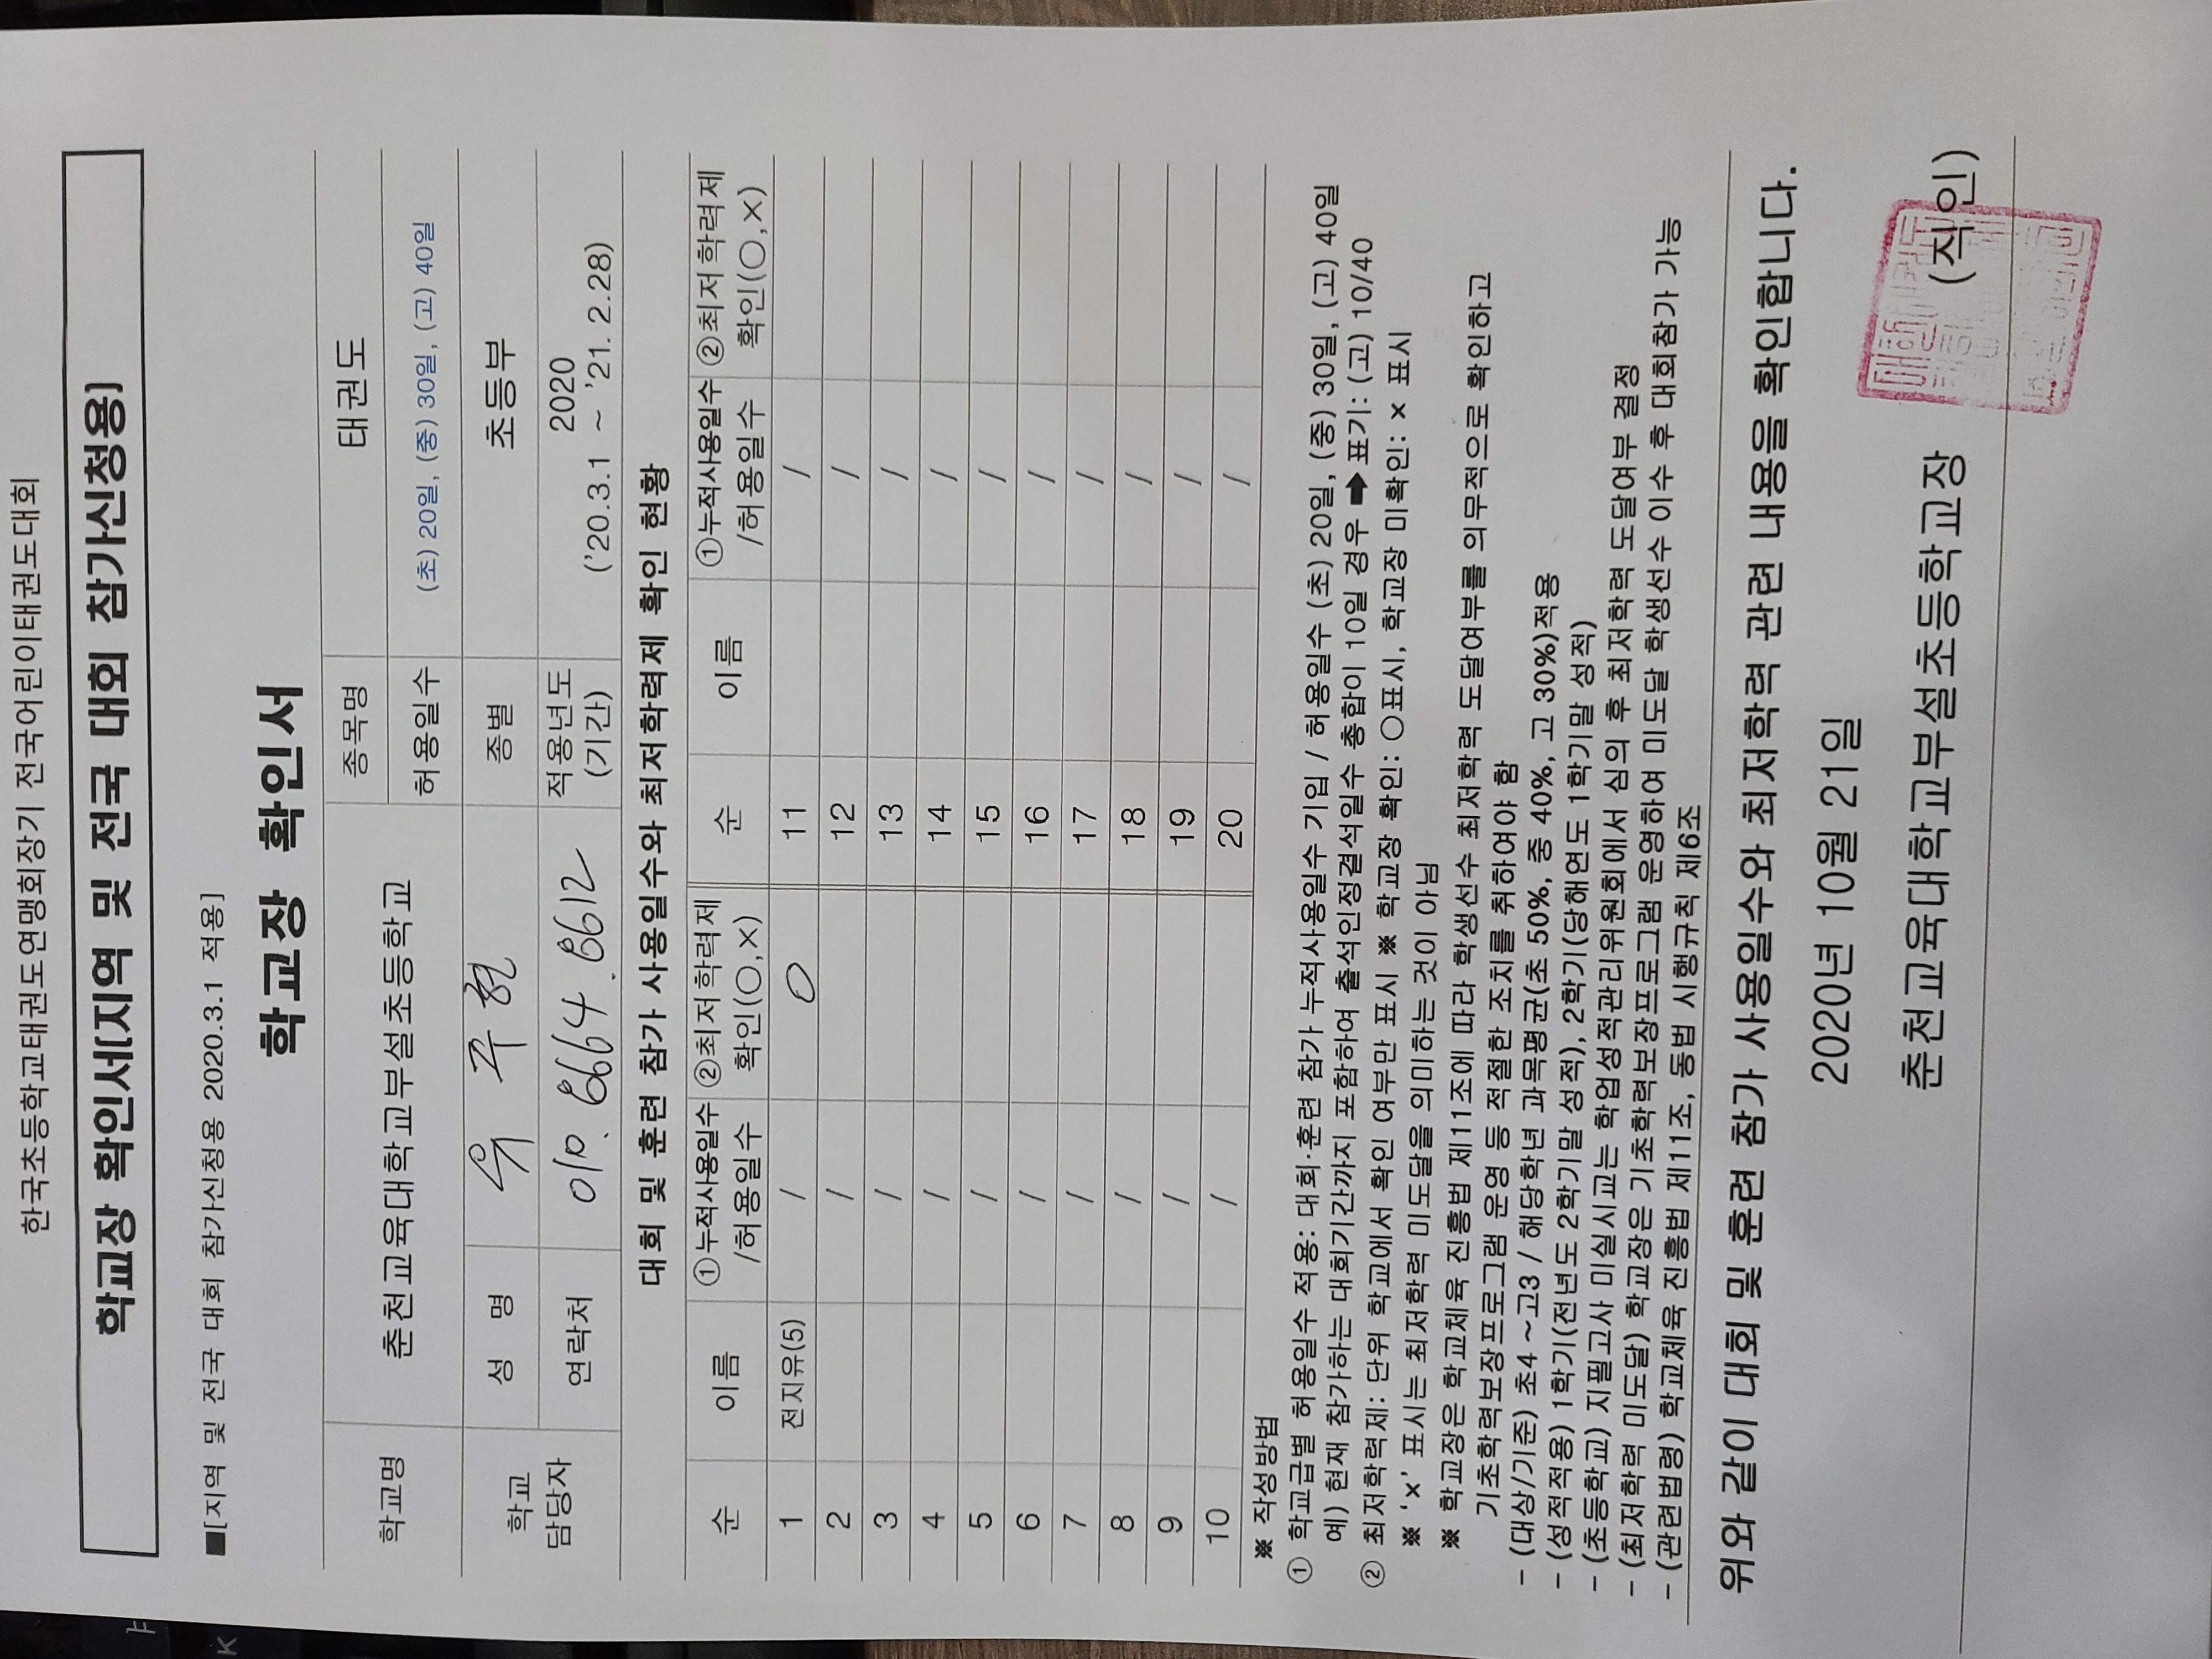 한국초등학교태권도연맹회장기 전국어린이태권도대회
학교장 확인서(지역 및 전국 대회 참가신청용)
■[지역 및 전국 대회 참가신청용 2020.3.1 적용]
학교장 확인서
학교명 춘천교육대학교부설초등학교 종목명 태권도
허용일수 (초) 20일, (중) 30일, (고) 40일
학교 담당자 성 명 종별 초등부
연락처 010. 8664. 8612 적용년도 (기간) 2020 ('20.3.1 ~ '21. 2.28)
대회 및 훈련 참가 사용일수와 최저학력제 확인 현황
순 이름 ①누적사용일수 /허용일수 ②최저학력제 확인(○,×) 순 이름 ①누적사용일수 /허용일수 ②최저학력제 확인(○,×)
1 전지유(5) / O 11 /
2 / 12 /
3 / 13 /
4 / 14 /
5 / 15 /
6 / 16 /
7 / 17 /
8 / 18 /
9 / 19 /
10 / 20 /
※ 작성방법
① 학교급별 허용일수 적용: 대회·훈련 참가 누적사용일수 기입 / 허용일수 (초) 20일, (중) 30일, (고) 40일
예) 현재 참가하는 대회기간까지 포함하여 출석인정결석일수 총합이 10일 경우 ➡표기: (고) 10/40
② 최저학력제: 단위 학교에서 확인 여부만 표시 ※ 학교장 확인: ○표시, 학교장 미확인: × 표시
※ '×' 표시는 최저학력 미도달을 의미하는 것이 아님
※ 학교장은 학교체육 진흥법 제11조에 따라 학생선수 최저학력 도달여부를 의무적으로 확인하고
기초학력보장프로그램 운영 등 적절한 조치를 취하여야 함
- (대상/기준) 초4 ~고3 / 해당학년 과목평균(초 50%, 중 40%, 고 30%)적용
- (성적적용) 1학기(전년도 2학기말 성적), 2학기(당해연도 1학기말 성적)
- (초등학교) 지필고사 미실시교는 학업성적관리위원회에서 심의 후 최저학력 도달여부 결정
- (최저학력 미도달) 학교장은 기초학력보장프로그램 운영하여 미도달 학생선수 이수 후 대회참가 가능
- (관련법령) 학교체육 진흥법 제11조, 동법 시행규칙 제6조
위와 같이 대회 및 훈련 참가 사용일수와 최저학력 관련 내용을 확인합니다.
2020년 10월 21일
춘천교육대학교부설초등학교장 (직인)